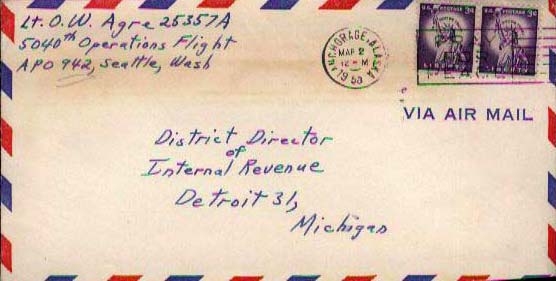 Lt. O. W. Agre 25357A
5040th Operations Flight
APO 942, Seattle, Wash
ANCHORAGE, ALASKA
MAR 2
VIA AIR MAIL
District Director
of
Internal Revenue
Detroit 31,
Michigan